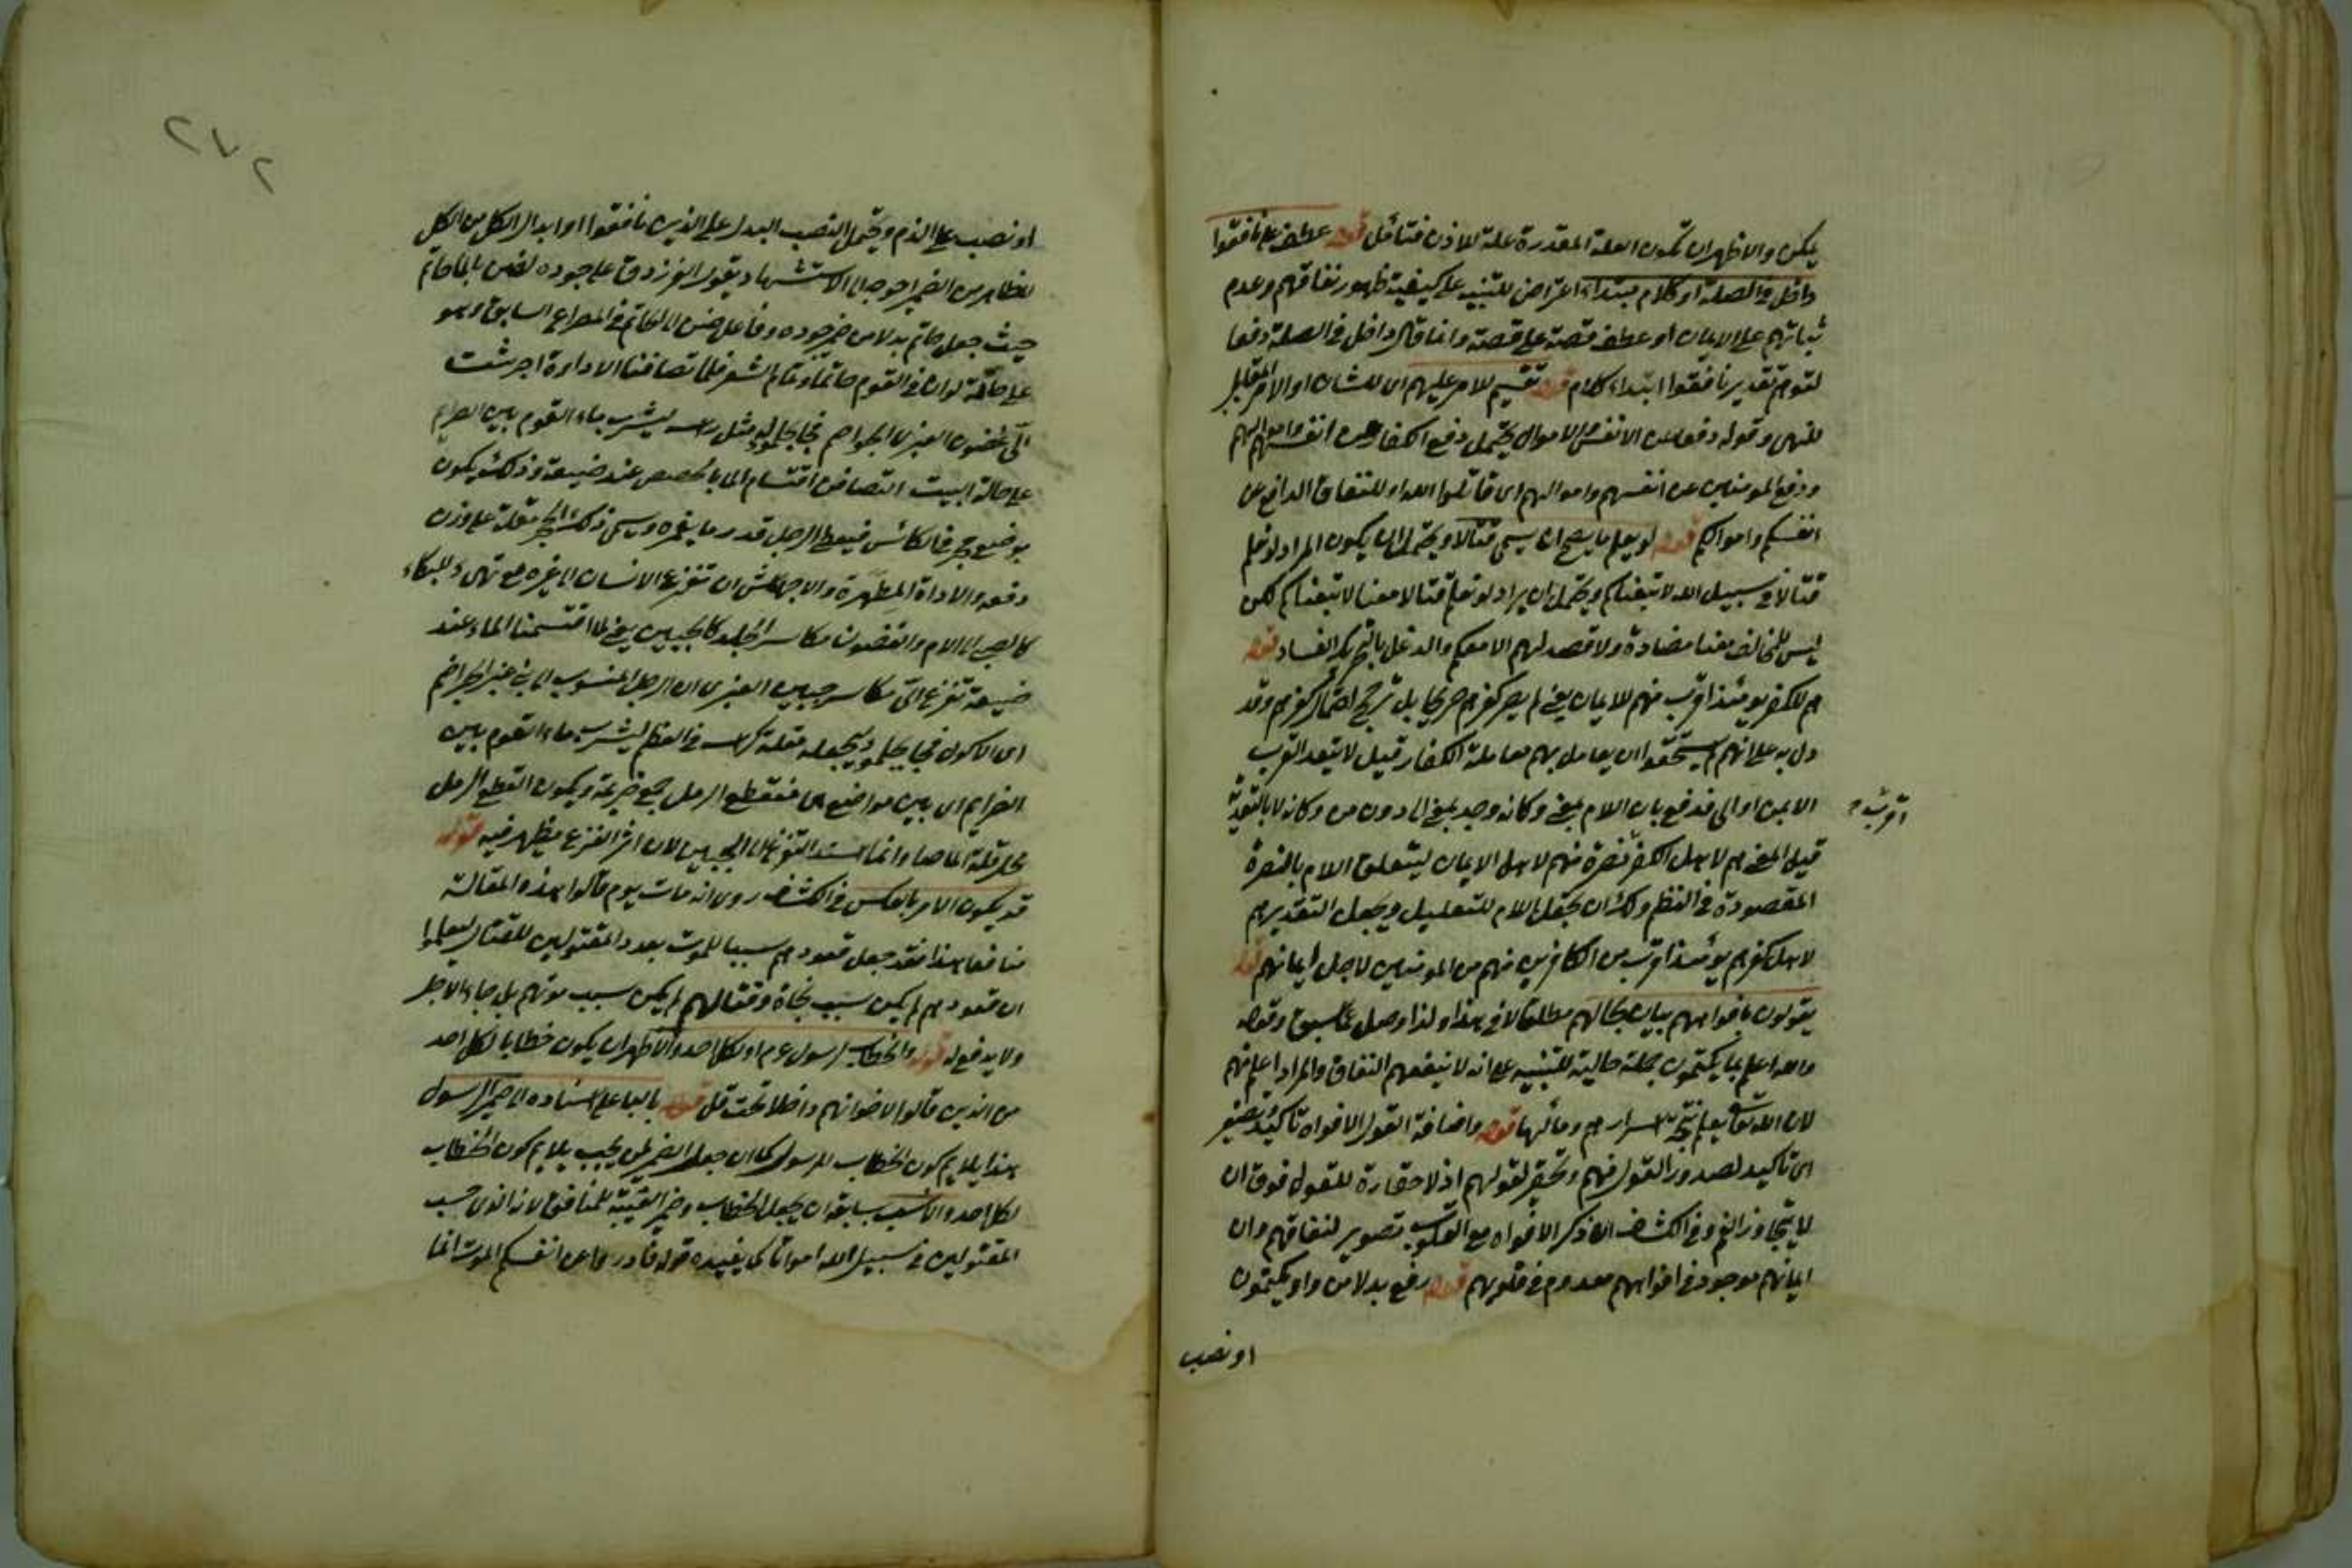 يمكن والاظهر ان تكون العلة المقدرة علة للاذن فتأمل قوله عطف على نافقوا
داخل في الصلة او كلام مبتداء اعتراض للتنبيه على كيفية ظهور نفاقهم وعدم
ثباتهم على الايمان او عطف قصة على قصة وانما قال داخل في الصلة دفعا
لتوهم تقدير نافقوا ابتداء كلام قوله تقسيم للامر عليهم اى للشان او الامر المقابل
للنهى وقوله دفع عن الانفس والاموال يحتمل دفع الكفار عن انفسهم واموالهم
ودفع المومنين عن انفسهم واموالهم اى قاتلوا لله او للنفاق الدافع عن
انفسكم واموالكم قوله لو نعلم ما يصح ان يسمى قتالا ويحتمل ان يكون المراد لو نعلم
قتالا في سبيل الله لاتبعناكم ويحتمل ان يراد لو نعلم قتالا معنا لاتبعناكم لكن
ليس للمخالف معنا مضادة ولا قصد لهم الا معكم والدغل بالتحريك الفساد قوله
هم للكفر يومئذ اقرب منهم للايمان يعنى لم يصر كفرهم صريحا بل ترجح احتمال كفرهم وقد
دل به على انهم استحقوا ان يعامل بهم معاملة الكفار قيل لا يتعد القرب
الا بمن او الى فدفع بان اللام بمعنى وكانه وجد بمعنى الى دون من وكانه لا بالتقدير
اقرب
قيل المعنى هم لاهل الكفر نصرة منهم لاهل الايمان ليتعلق اللام بالنصرة
المقصودة في النظم ولك ان يجعل اللام للتعليل ويجعل التقدير هم
لاجل كفرهم يومئذ اقرب من الكافرين منهم من المومنين لاجل ايمانهم قوله
يقولون بافواههم بيان لحالهم مطلقا لا في هذا ولذا وصل بما سبق وقوله
والله اعلم بما يكتمون جملة حالية للتنبيه على انه لا ينفعهم النفاق والمراد اعلم منهم
لان الله تعالى يعلم نتيجة اسرارهم ومآلها قوله واضافة القول الى الافواه تاكيد وتصغير
اى تاكيد لصدور القول منهم وتحقير لقولهم اذ لا حقارة للقول فوق ان
لا يتجاوز الفم وفي الكشاف ان ذكر الافواه مع القلوب تصوير لنفاقهم وان
ايمانهم موجود في افواههم معدوم في قلوبهم قوله رفع بدلا من واو يكتمون
او نصب
٢٧٢
او نصب على الذم ويحتمل النصب البدل على الذين نافقوا او ابدال الكل من الكل
للظاهر من الضمير احوجه الى الاستشهاد بقول الفرزدق على جوده لضن بالماء حاتم
حيث جعل حاتم بدلا من ضمير جوده وفاعل ضن الى الحاتم في المصراع السابق وهو
على حالة لو ان في القوم حاتما وتمام الشعر فلما تصافنا الاداوة اجهشت
الى غضون العنبرى الجراضم فجاء بجلمود له مثل راسه ليشرب ماء القوم بين الصرايم
على حالة البيت التصافن اقتسام الماء بالحصص عند ضيقه وذلك يكون
بوضع حجر في الكاس فيعطى الرجل قدر ما يغمره ويسمى ذلك الحجر مقلة على وزن
دفعه والاداة المطهرة والاجهاش ان تفزع الانسان الى غيره مع تهيء للبكاء
كالصبى الى الام والغضون مكاسر الجلد كالجبين يعنى لما اقتسمنا الماء عند
ضيقه تفزع الى مكاسر جبين العنبرى اى الرجل المنسوب الى بنى عنبر الجراضم
اى الاكول فجاء بجلمود يجعله مقلة كراسه في العظم ليشرب ماء القوم بين
الصرايم اى بين مواضع هى منقطع الرمل جمع صريمة ويكون القطع الرمل
محل قلة الماء وانما اسند التفزع الى الجبين لان اثر الفزع يظهر فيه قوله
قد يكون الامر بالعكس في الكشاف روى انه مات يوم قالوا هذه المقالة
منافقا هذا فقد جعل قعودهم سببا للموت بعدد المقتولين للقتال ليعلموا
ان قعودهم لم يكن سبب نجاة وقتالهم لم يكن سبب موتهم بل جاء الاجل
ولا يدفع له قوله والخطاب لرسول عم او لكل احد والاظهر ان يكون خطابا لكل احد
من الذين قالوا لاخوانهم داخلا تحت قل قوله بالياء على اسناده الى ضمير الرسول
هذا يلايم كون الخطاب للرسول كما ان جعل الضمير لمن يحسب يلايم كون الخطاب
لكل احد والانسب بسابقه ان يجعل الخطاب وضمير الغيبة للمنافق لانه الذى حسب
المقتولين في سبيل الله امواتا كما يفيده قوله فادرءوا عن انفسكم الموت انما